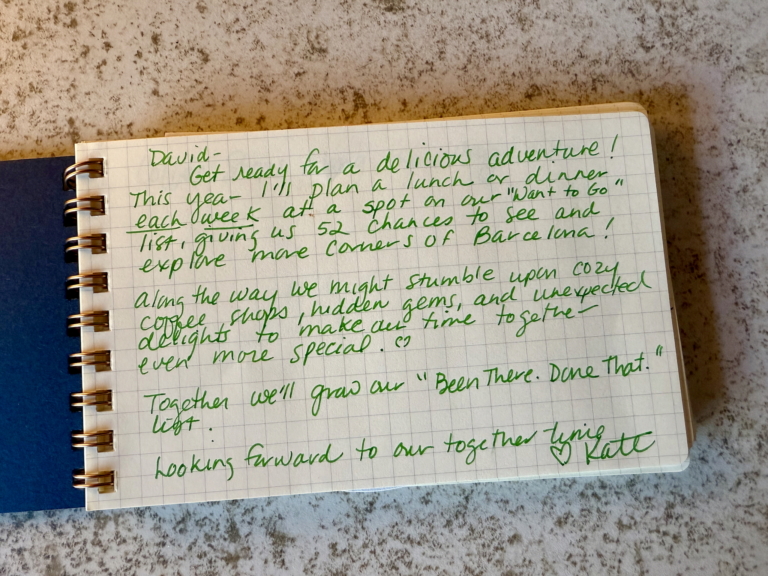 David-
Get ready for a delicious adventure!
This year I'll plan a lunch or dinner
each week at a spot on our "Want to Go"
list, giving us 52 chances to see and
explore more corners of Barcelona!
Along the way we might stumble upon cozy
coffee shops, hidden gems, and unexpected
delights to make our time together
even more special. ♡
Together we'll grow our "Been There. Done That."
list.
Looking forward to our together time
♡ Kate